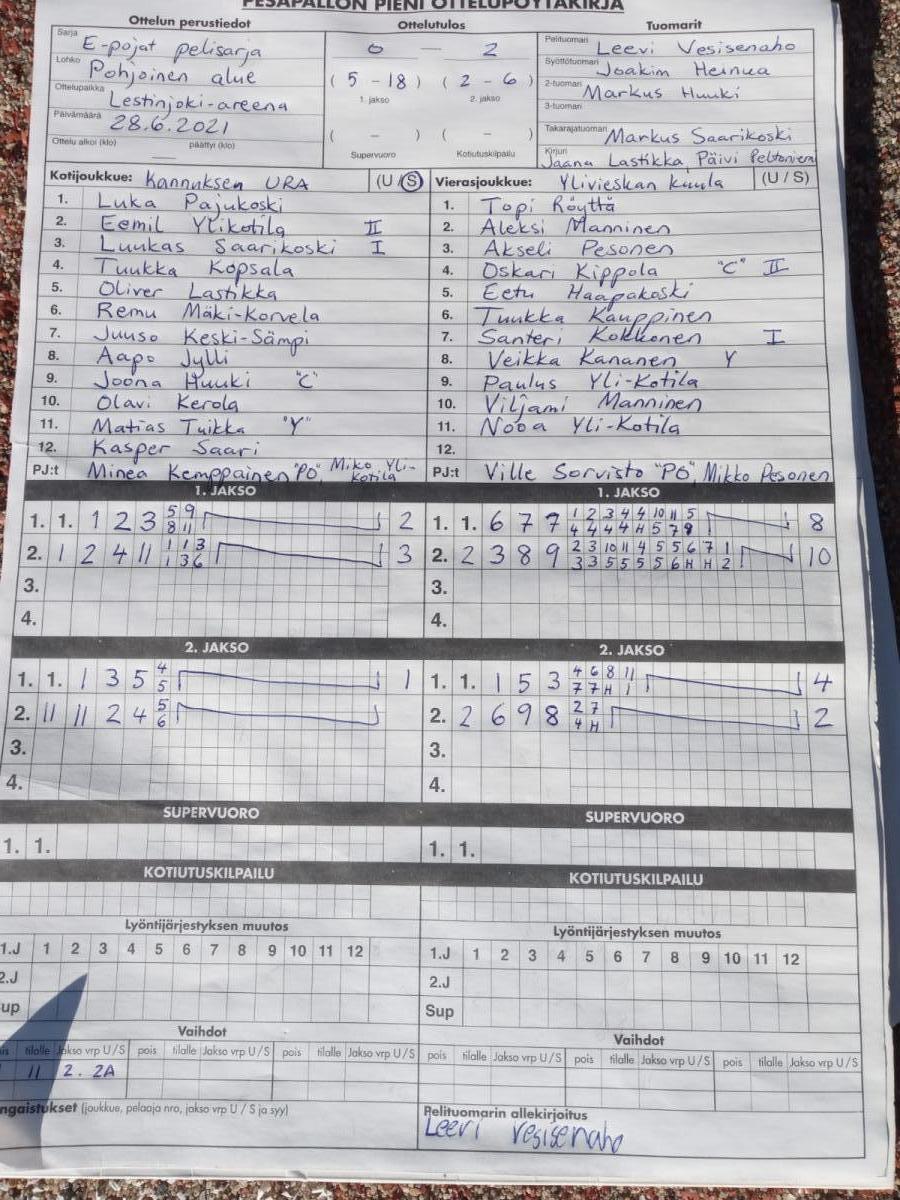 PESÄPALLON PIENI OTTELUPÖYTÄKIRJA
Ottelun perustiedot
Sarja E-pojat pelisarja
Lohko Pohjoinen alue
Ottelupaikka Lestinjoki-areena
Päivämäärä 28.6.2021
Ottelu alkoi (klo) — päättyi (klo)
Ottelutulos
0 — 2
( 5 - 18 ) ( 2 - 6 )
1. jakso 2. jakso
( - ) ( - )
Supervuoro Kotiutuskilpailu
Tuomarit
Pelituomari Leevi Vesisenaho
Syöttötuomari Joakim Heinua
2-tuomari Markus Huuki
3-tuomari
Takarajatuomari Markus Saarikoski
Kirjuri Jaana Lastikka, Päivi Peltoniemi
Kotijoukkue: Kannuksen URA (U / S)
1. Luka Pajukoski
2. Eemil Ylikotila II
3. Luukas Saarikoski I
4. Tuukka Kopsala
5. Oliver Lastikka
6. Remu Mäki-Korvela
7. Juuso Keski-Sämpi
8. Aapo Jylli
9. Joona Huuki "C"
10. Olavi Kerola
11. Matias Tuikka "Y"
12. Kasper Saari
PJ:t Minea Kemppainen "PO", Miko Yli-Kotila
Vierasjoukkue: Ylivieskan kuula (U / S)
1. Topi Röyttä
2. Aleksi Manninen
3. Akseli Pesonen
4. Oskari Kippola "C" II
5. Eetu Haapakoski
6. Tuukka Kauppinen
7. Santeri Kokkonen I
8. Veikka Kananen Y
9. Paulus Yli-Kotila
10. Viljami Manninen
11. Nooa Yli-Kotila
12.
PJ:t Ville Sorvisto "PO", Mikko Pesonen
1. JAKSO
1. 1. 1 2 3 5 9 2
8 11
2. 1 2 4 11 1 1 3 3
1 3 6
3.
4.
1. JAKSO
1. 1. 6 7 7 1 2 3 4 4 10 11 5 8
4 4 4 4 H 5 7 8
2. 2 3 8 9 2 3 10 11 4 5 5 6 7 1 10
3 3 5 5 5 5 6 H H 2
3.
4.
2. JAKSO
1. 1. 1 3 5 4 1
5
2. 11 11 2 4 5
6
3.
4.
2. JAKSO
1. 1. 1 5 3 4 6 8 11 4
7 7 H 1
2. 2 6 9 8 2 7 2
4 H
3.
4.
SUPERVUORO
1. 1.
SUPERVUORO
1. 1.
KOTIUTUSKILPAILU
KOTIUTUSKILPAILU
Lyöntijärjestyksen muutos
1.J 1 2 3 4 5 6 7 8 9 10 11 12
2.J
Sup
Lyöntijärjestyksen muutos
1.J 1 2 3 4 5 6 7 8 9 10 11 12
2.J
Sup
Vaihdot
pois tilalle Jakso vrp U/S pois tilalle Jakso vrp U/S pois tilalle Jakso vrp U/S
11 2. 2A
Vaihdot
pois tilalle Jakso vrp U/S pois tilalle Jakso vrp U/S pois tilalle Jakso vrp U/S
ngaistukset (joukkue, pelaaja nro, jakso vrp U / S ja syy)
Pelituomarin allekirjoitus
Leevi Vesisenaho